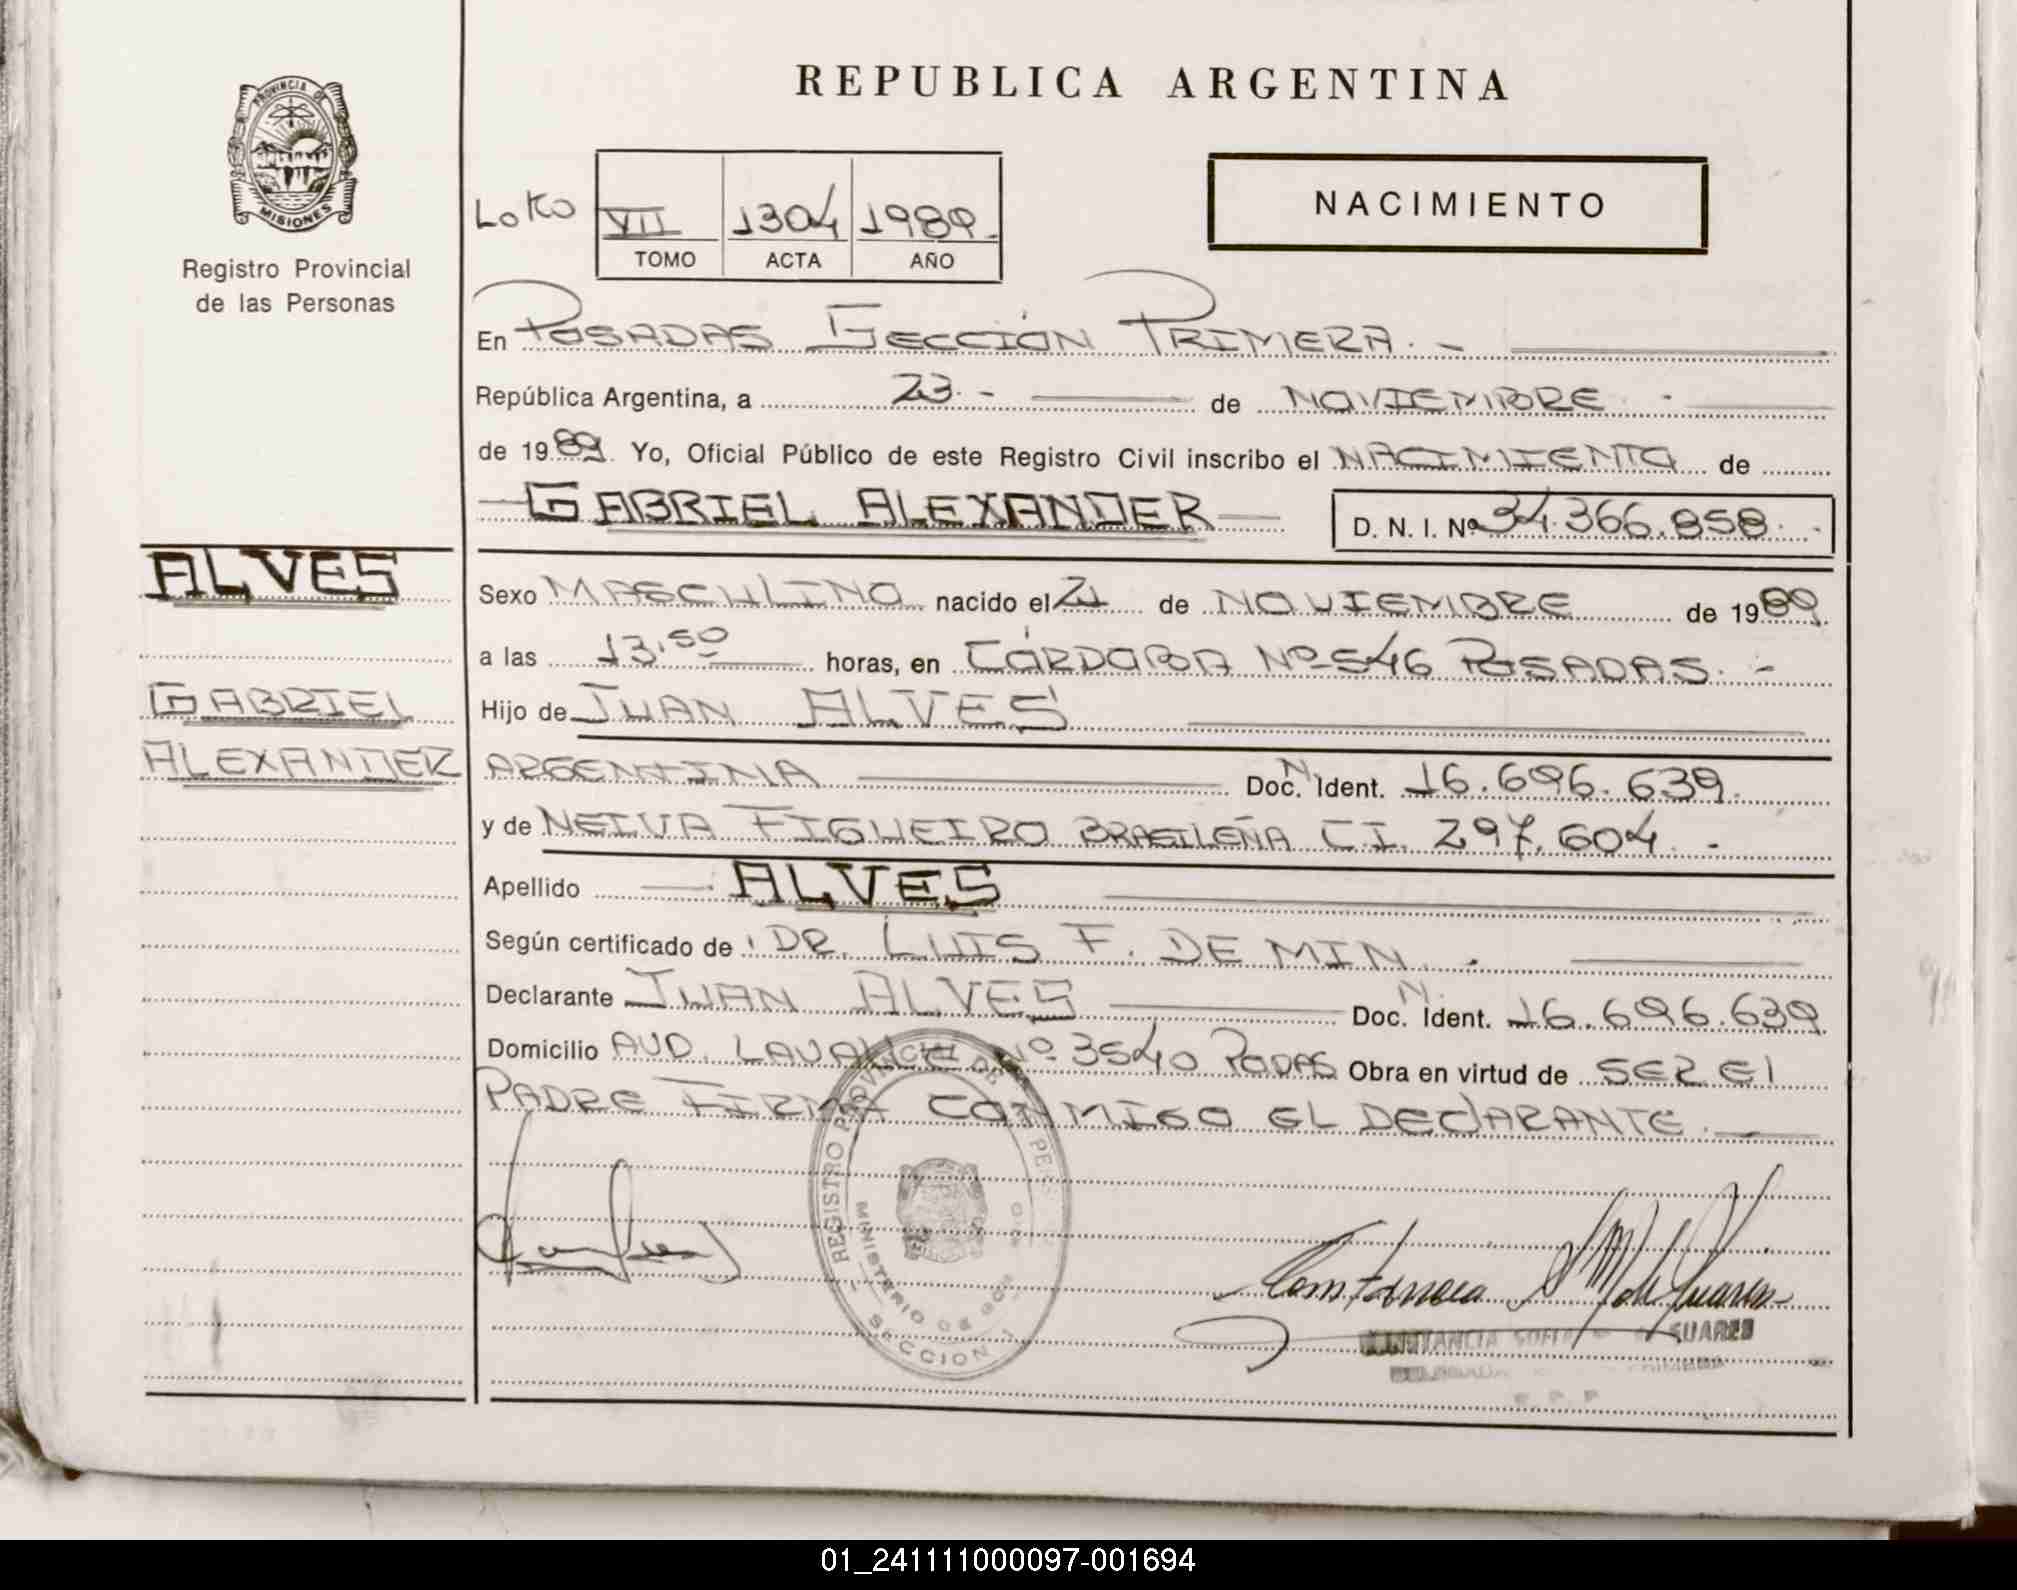 REPUBLICA ARGENTINA
PROVINCIA DE
MISIONES
Registro Provincial
de las Personas
NACIMIENTO
VII 1304 1989.
TOMO ACTA AÑO
En POSADAS SECCIÓN PRIMERA. -
República Argentina, a 23. - de NOVIEMBRE. -
de 1989. Yo, Oficial Público de este Registro Civil inscribo el NACIMIENTO de
GABRIEL ALEXANDER D. N. I. Nº 34.366.858. -
ALVES
GABRIEL
ALEXANDER
Sexo MASCULINO nacido el 21 de NOVIEMBRE de 1989
a las 13,50 horas, en CÓRDOBA Nº 546 POSADAS. -
Hijo de JUAN ALVES
ARGENTINA Doc. N. Ident. 16.696.639.
y de NEIVA FIGUEIRO BRASILEÑA C.I. 297.604. -
Apellido ALVES
Según certificado de DR. LUIS F. DE MIN. .
Declarante JUAN ALVES Doc. N. Ident. 16.696.639
Domicilio AVD. LAVALLE Nº 3540 PODAS Obra en virtud de SER El
PADRE FIRMA CONMIGO EL DEClARANTE. -
REGISTRO PROVINCIAL DE LAS PERS
MINISTERIO DE GOB
SECCION 1
Constancia S M de Suarez
CONSTANCIA SOFIA SUAREZ
01_241111000097-001694